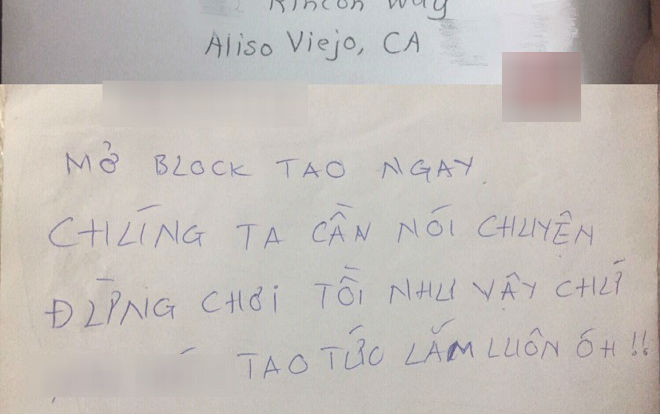 Rincon Way
Aliso Viejo, CA
MỞ BLOCK TAO NGAY.
CHÚNG TA CẦN NÓI CHUYỆN
ĐỪNG CHƠI TỒI NHƯ VẬY CHỨ
TAO TỨC LẮM LUÔN ÓH!!